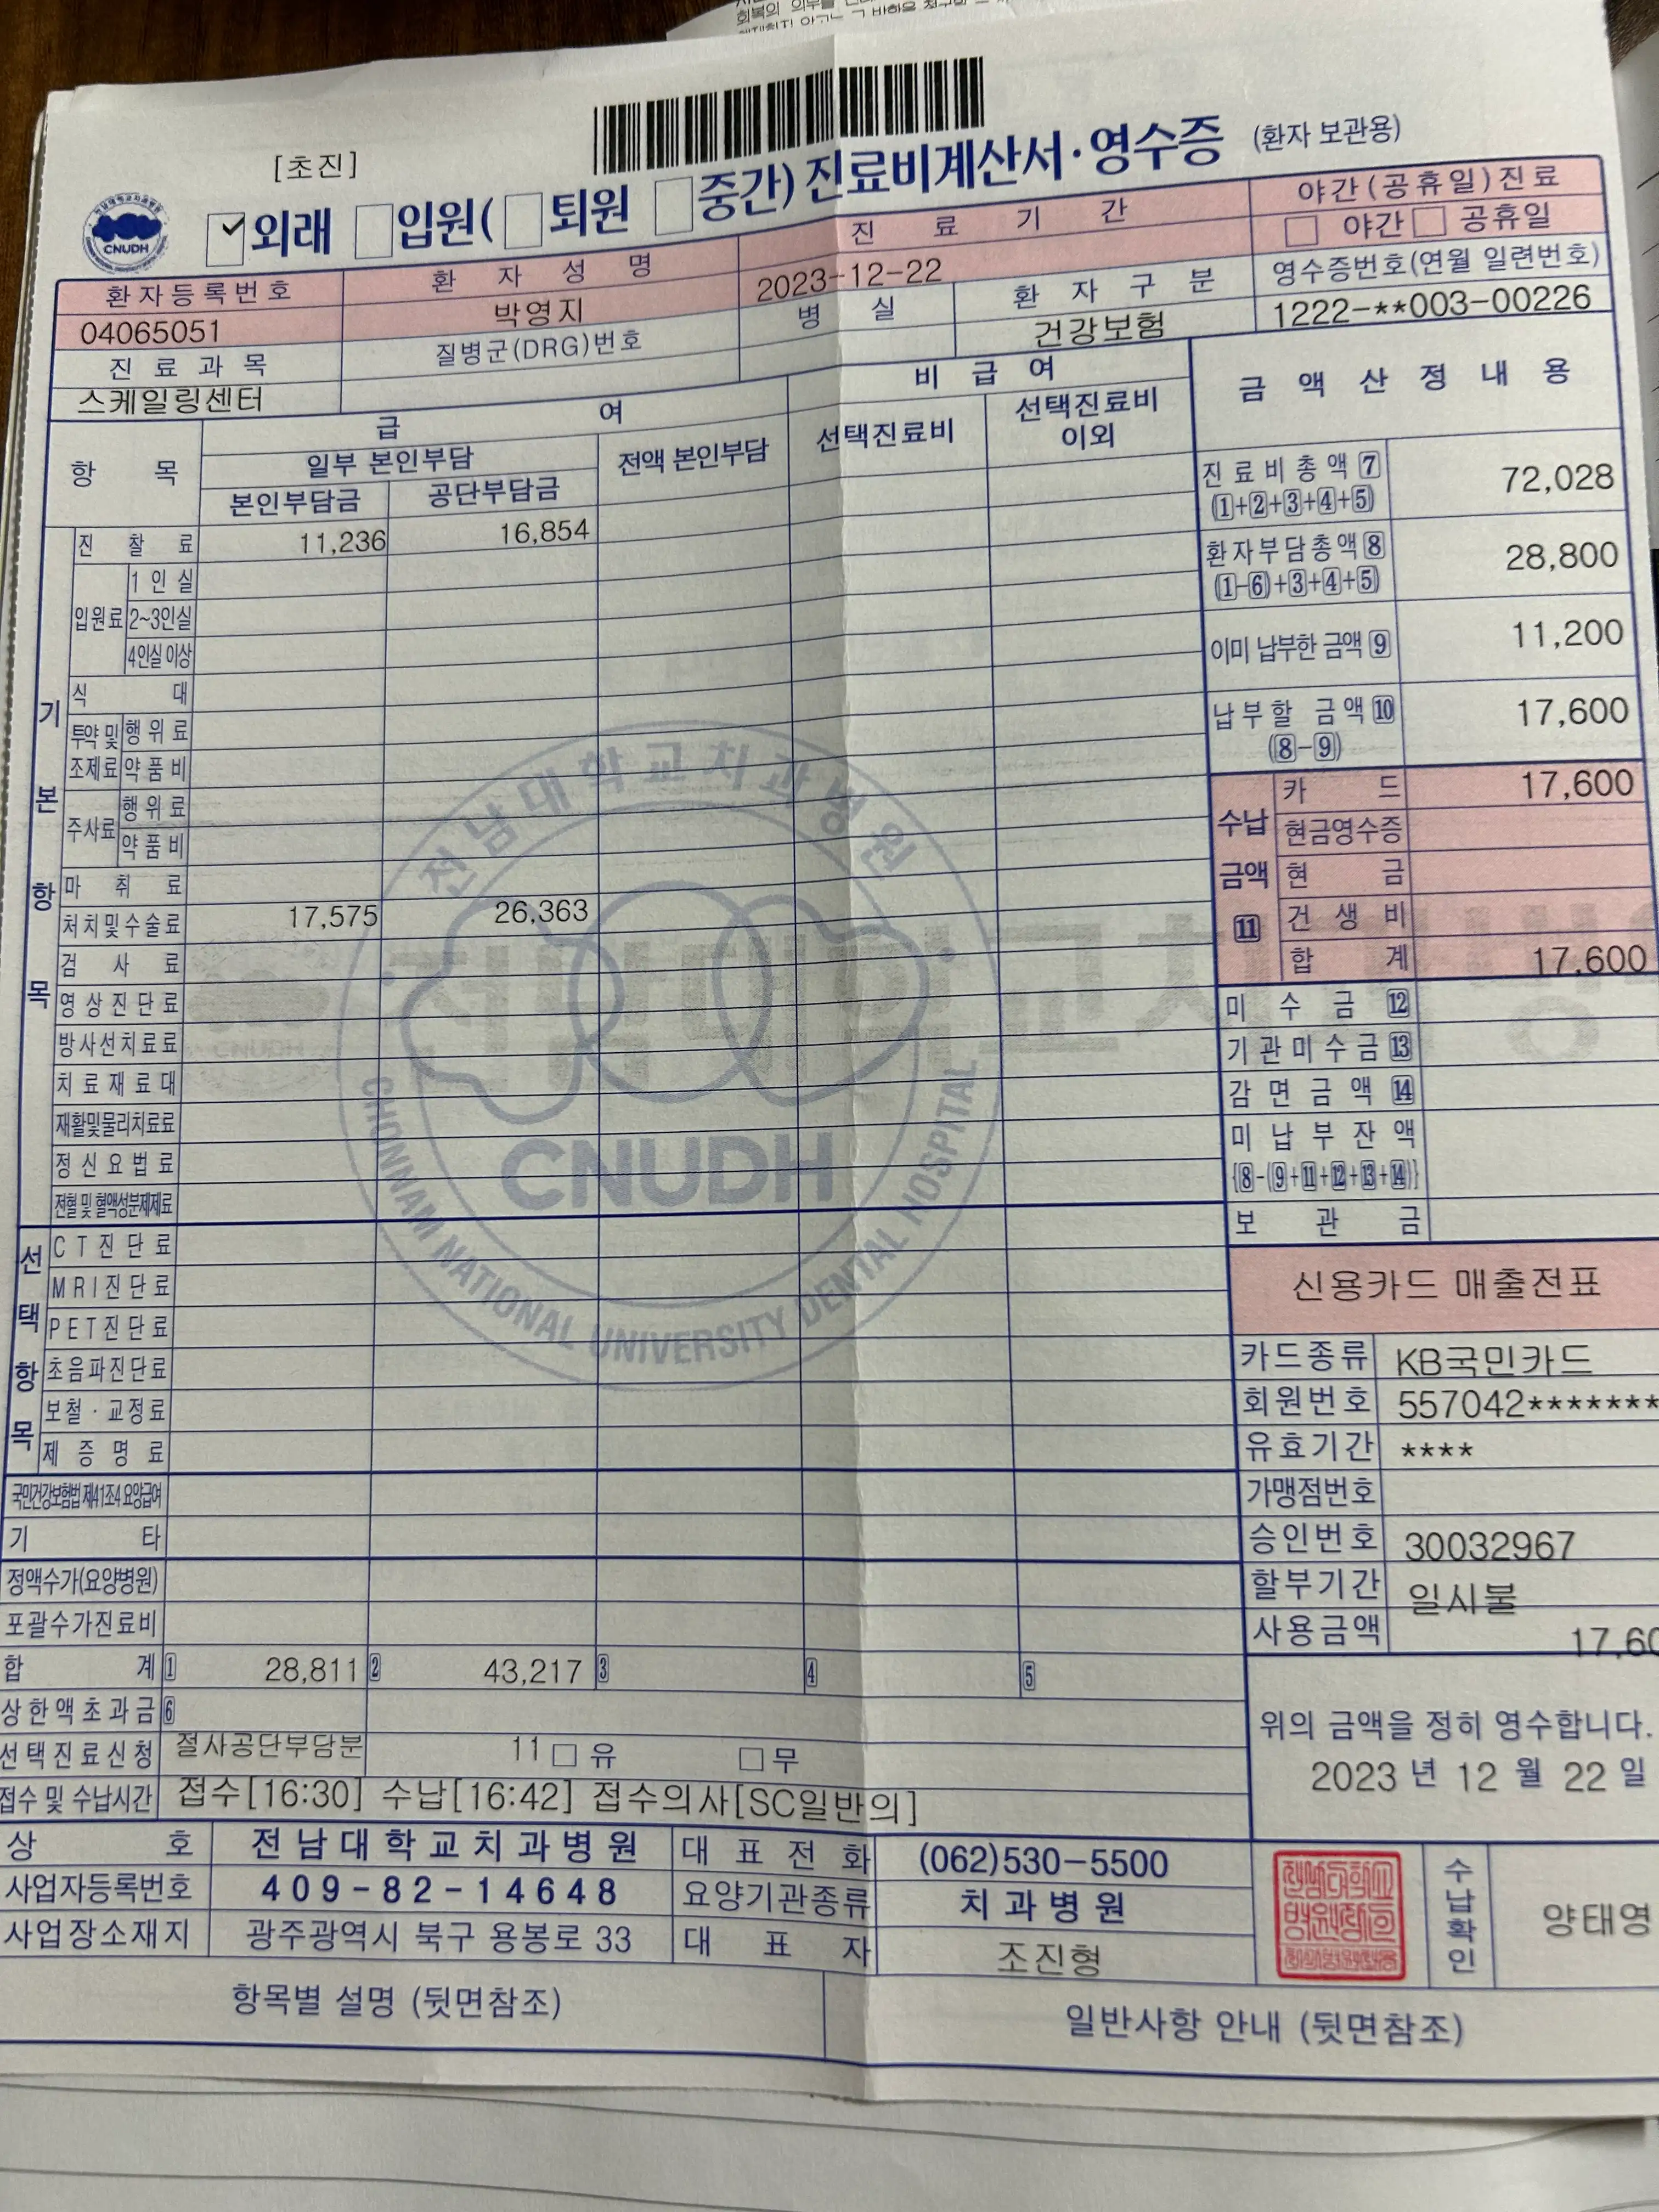 [초진]
외래 입원( 퇴원 중간) 진료비계산서·영수증 (환자 보관용)
CNUDH
환자등록번호 환 자 성 명 진 료 기 간 야간(공휴일)진료
04065051 박영지 2023-12-22 야간 공휴일
진 료 과 목 질병군(DRG)번호 병 실 환 자 구 분 영수증번호(연월 일련번호)
스케일링센터 건강보험 1222-**003-00226
항 목 급 여 비 급 여 금 액 산 정 내 용
일부 본인부담 전액 본인부담 선택진료비 선택진료비 이외
본인부담금 공단부담금
기 본 항 목
진 찰 료 11,236 16,854
입원료 1 인 실
2~3인실
4인실 이상
식 대
투약 및 조제료 행 위 료
약 품 비
주사료 행 위 료
약 품 비
마 취 료
처치및수술료 17,575 26,363
검 사 료
영상진단료
방사선치료료
치료재료대
재활및물리치료료
정신요법료
전혈 및 혈액성분제제료
선 택 항 목
CT진단료
MRI진단료
PET진단료
초음파진단료
보철·교정료
제 증 명 료
국민건강보험법 제41조4 요양급여
기 타
정액수가(요양병원)
포괄수가진료비
합 계 1 28,811 2 43,217 3 4 5
상한액초과금 6
선택진료신청 절사공단부담분 11 유 무
접수 및 수납시간 접수[16:30] 수납[16:42] 접수의사[SC일반의]
진료비총액 7 72,028
(1+2+3+4+5)
환자부담총액 8 28,800
(1-6)+3+4+5)
이미 납부한 금액 9 11,200
납부할 금액 10 17,600
(8-9)
수납 금액 11
카 드 17,600
현금영수증
현 금
건 생 비
합 계 17,600
미 수 금 12
기관미수금 13
감 면 금 액 14
미 납 부 잔 액
{8-(9+11+12+13+14)}
보 관 금
신용카드 매출전표
카드종류 KB국민카드
회원번호 557042*******
유효기간 ****
가맹점번호
승인번호 30032967
할부기간 일시불
사용금액 17,60
위의 금액을 정히 영수합니다.
2023 년 12 월 22 일
상 호 전남대학교치과병원 대 표 전 화 (062)530-5500
사업자등록번호 409-82-14648 요양기관종류 치과병원
사업장소재지 광주광역시 북구 용봉로 33 대 표 자 조진형
수납확인 양태영
항목별 설명 (뒷면참조) 일반사항 안내 (뒷면참조)
전남대학교치과병원
CNUDH
CHONNAM NATIONAL UNIVERSITY DENTAL HOSPITAL